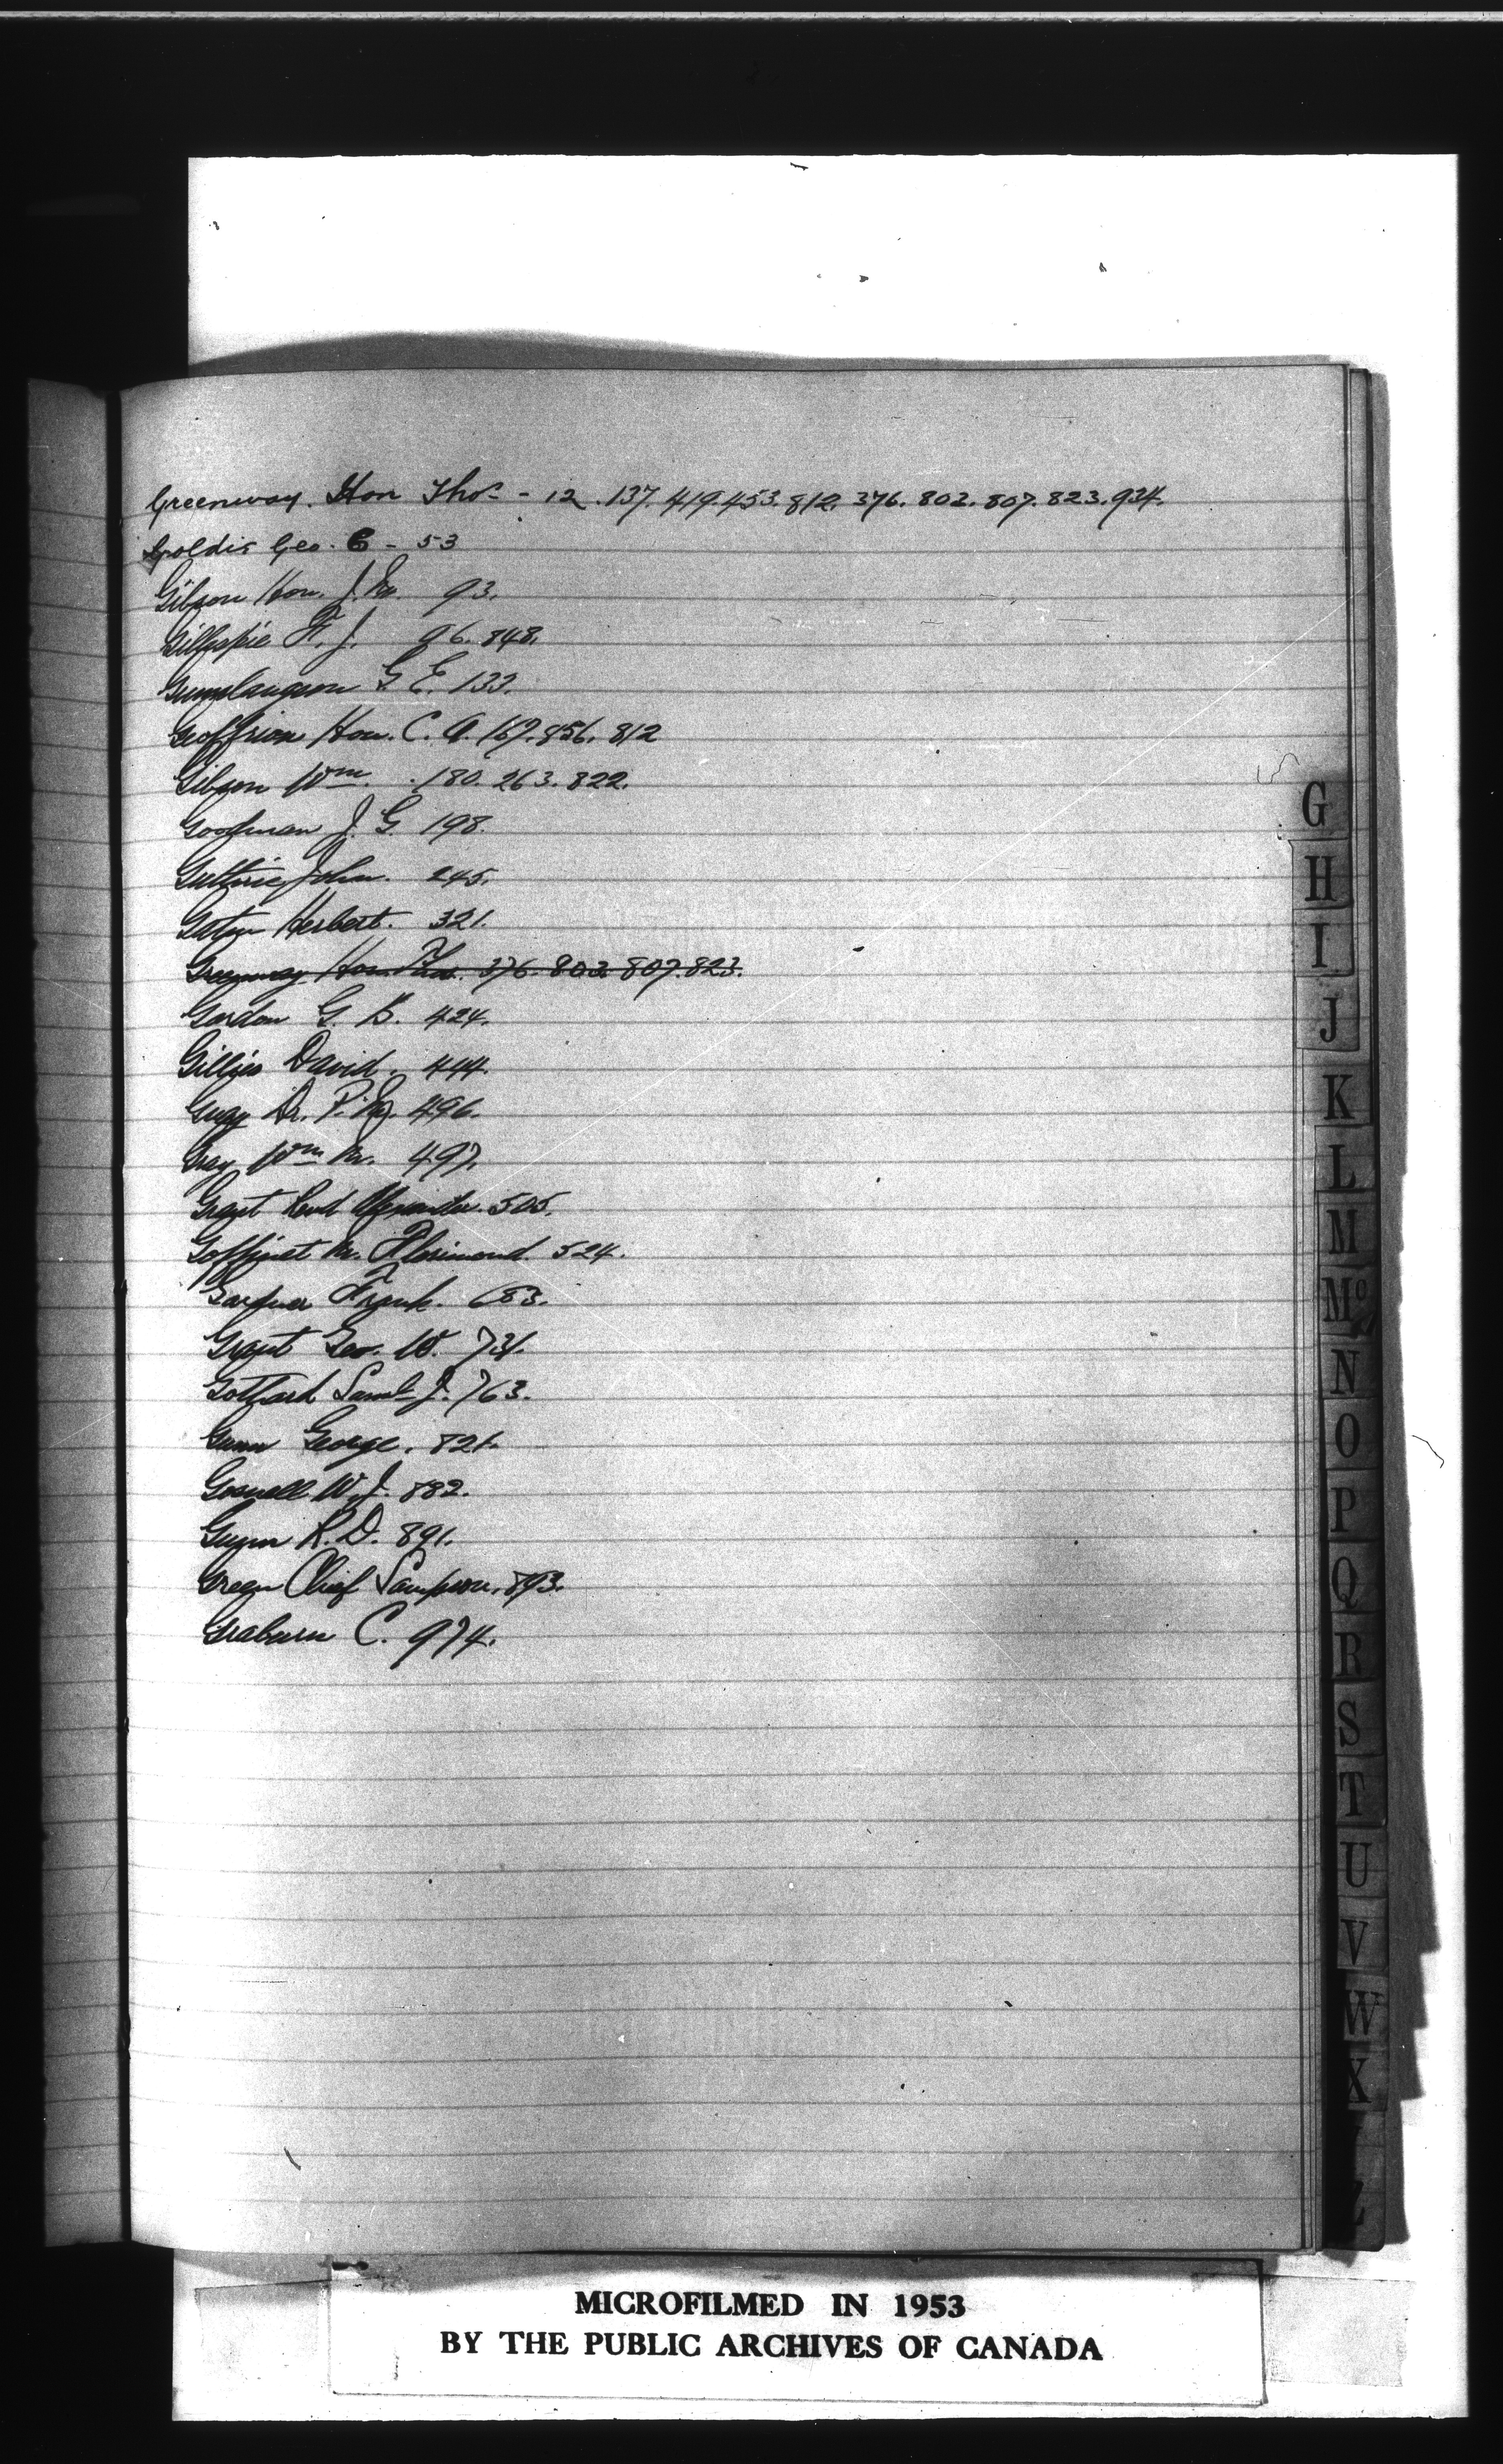 Greenway. Hon Thos - 12. 137. 419. 453. 812. 376. 802. 807. 823. 934.
Goldie Geo. C - 53
Gibson Hon. J. M. 93.
Gillespie F. J. 96. 848.
Gunnlaugson G. E. 133.
Geoffrion Hon. C. A. 167. 856. 812
Gibson Wm. 180. 263. 822.
Goodman J. G. 198.
Guthrie, John. 245.
Herbert. 321.
Greenway Hon Thos. 376. 803. 807. 823.
Gordon G. B. 424.
Gillies David. 444.
Guay Dr. P. M. 496.
Gray Wm M. 497.
Grant Revd Alexander. 505.
Goffinet M. Florimond. 524.
Gardner Frank. 683.
Grant Geo. W. 731.
Gothard Saml J. 763.
Gunn George. 821.
Gosnell W. J. 882.
Gunn R. D. 891.
Green Chief Sampson. 893.
Graburn C. 974.
G
H
I
J
K
L
M
Mc
N
O
P
Q
R
S
T
U
V
W
X
Z
MICROFILMED IN 1953
BY THE PUBLIC ARCHIVES OF CANADA